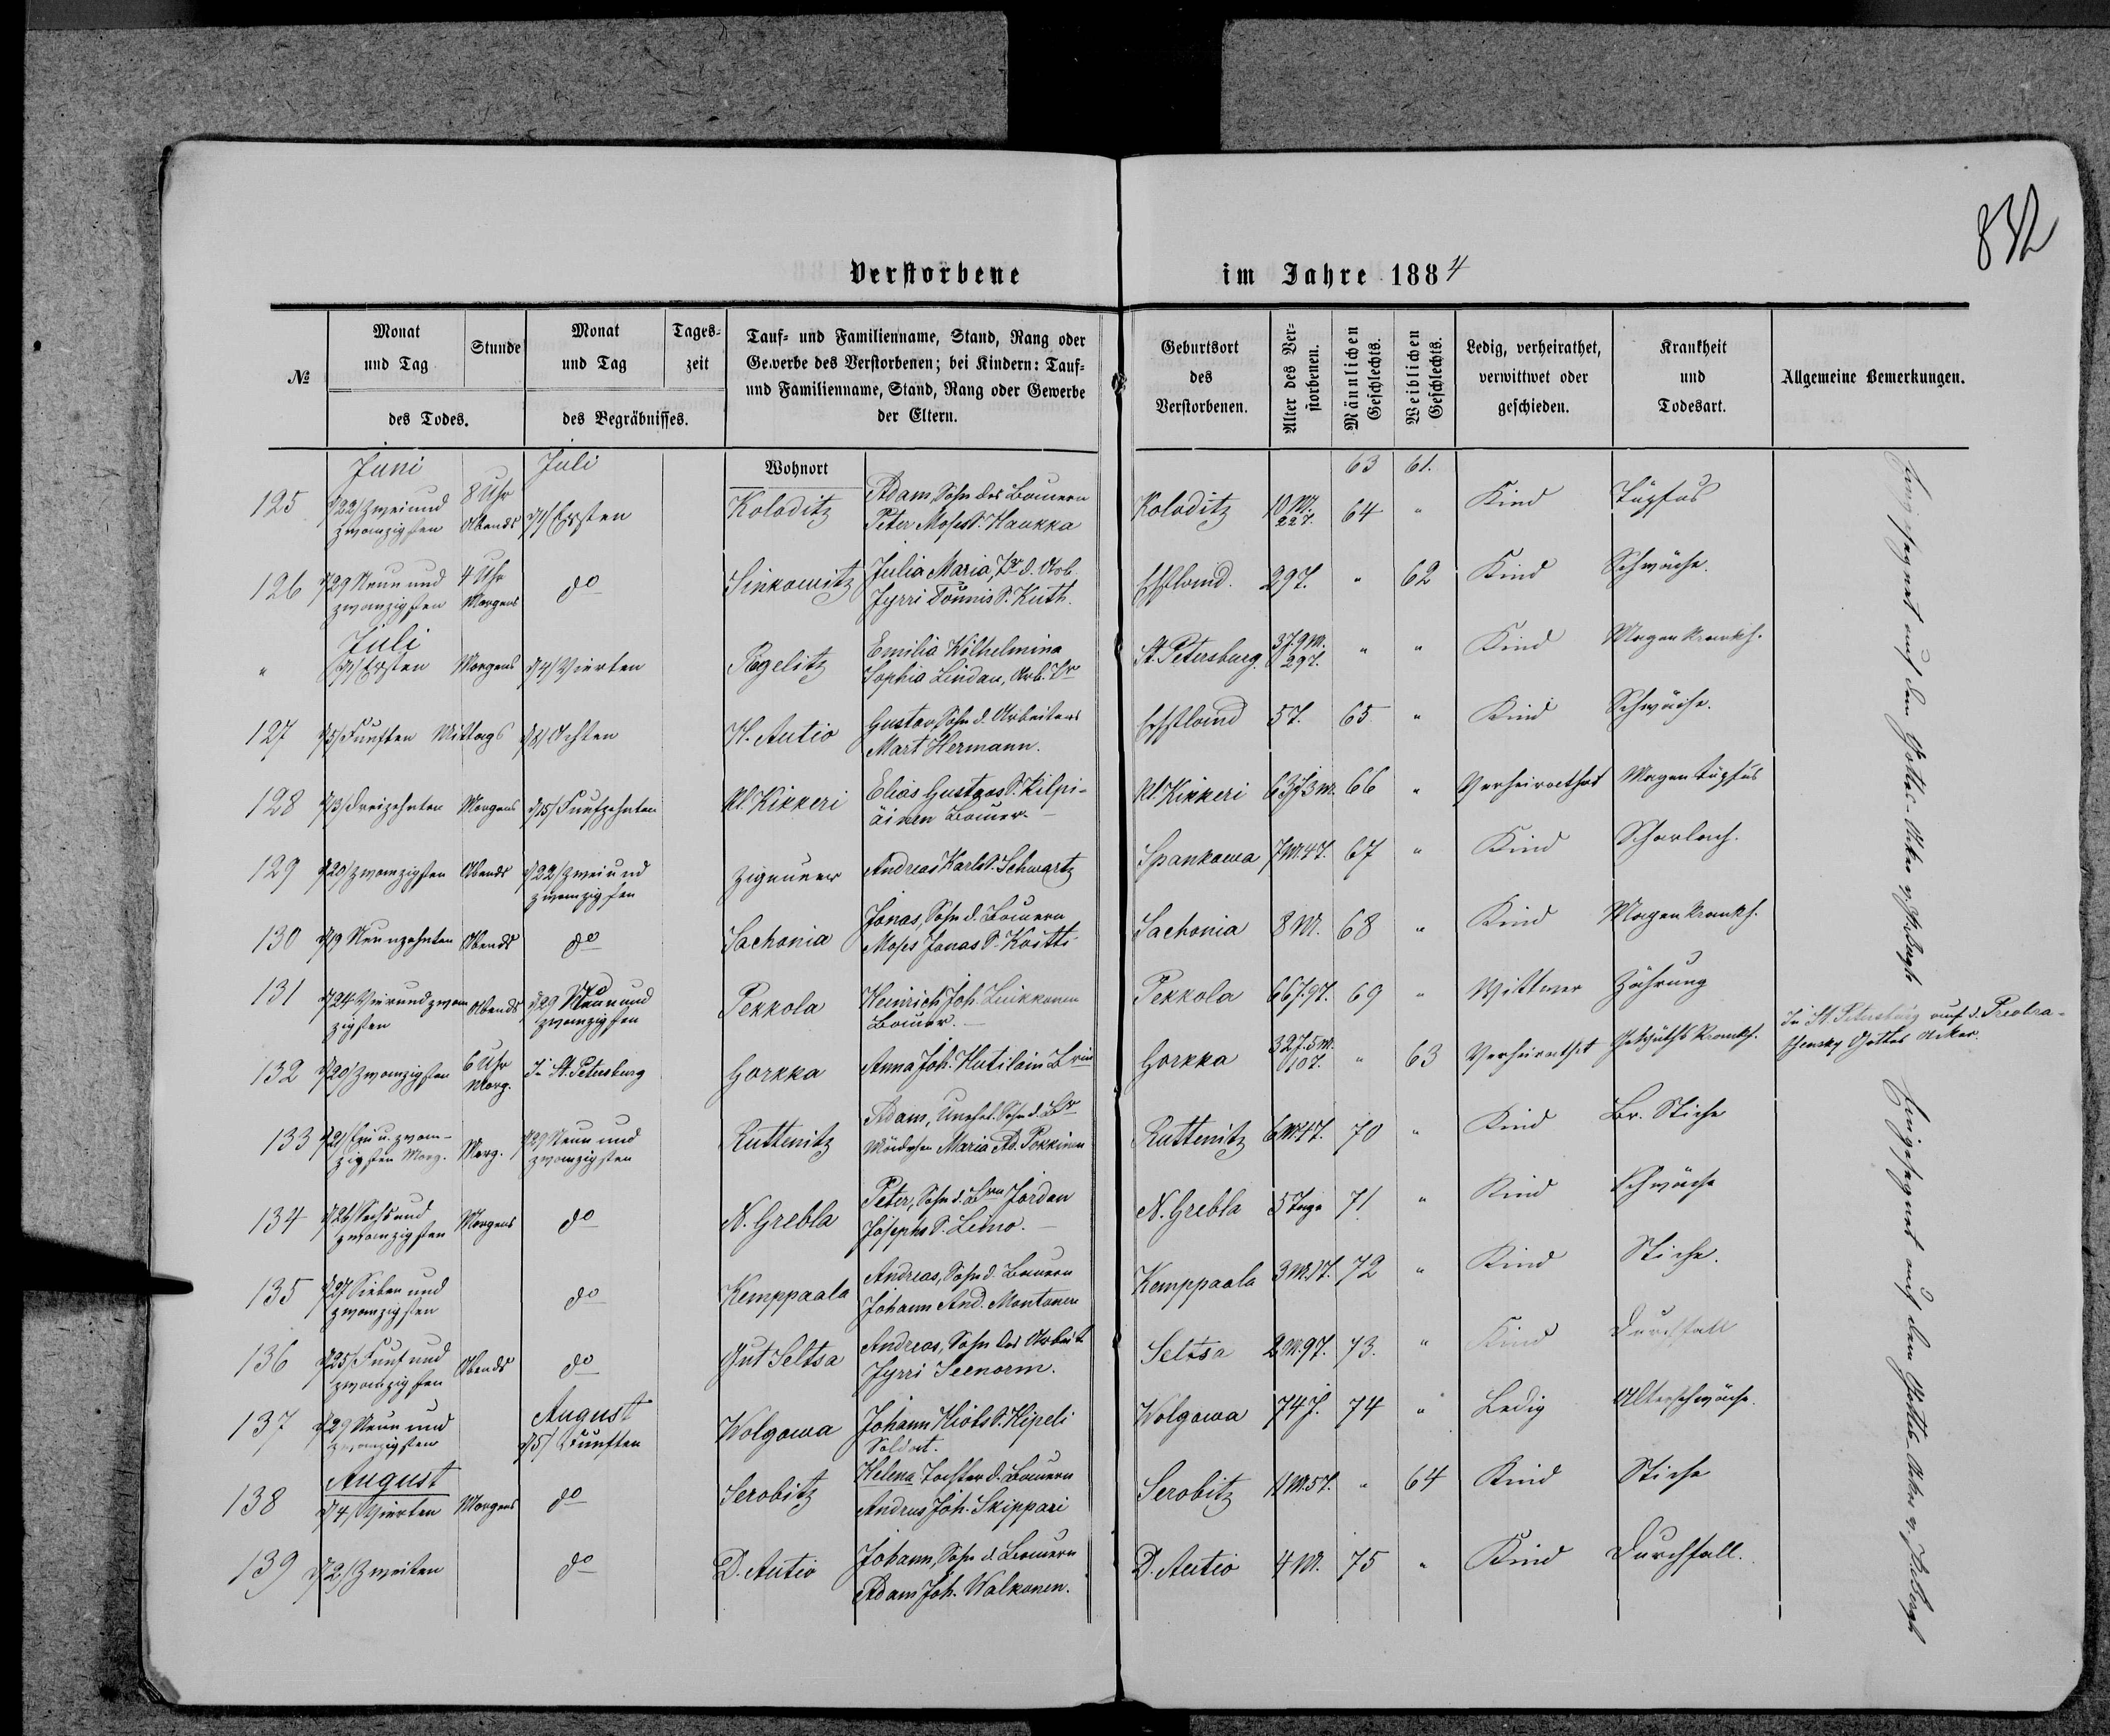 832
Verstorbene im Jahre 1884
№
Monat und Tag
Stunde
des Todes.
Monat und Tag
Tages-zeit
des Begräbnisses.
Tauf- und Familienname, Stand, Rang oder
Gewerbe des Verstorbenen; bei Kindern: Tauf-
und Familienname, Stand, Rang oder Gewerbe
der Eltern.
Geburtsort des Verstorbenen.
Alter des Ver-storbenen.
Männlichen Geschlechts.
Weiblichen Geschlechts.
Ledig, verheirathet, verwittwet oder geschieden.
Krankheit und Todesart.
Allgemeine Bemerkungen.
Juni Juli Wohnort 63 61.
125 d 22/ Zwei und zwanzigsten 8 Uhr Abends d 1/ Ersten Koloditz Adam, Sohn des Bauern
Peter Moses S. Haukka Koloditz 10 M. 22 T. 64 " Kind Typhus
126 d 29 Neun und zwanzigsten 4 Uhr Morgens do Sinkowitz Julia Maria, Tr d. Arb.
Jyrri Dönnis S. Kuth. Estland. 29 T. " 62 Kind Schwäche.
Juli
" d 1/ Ersten Morgens d 4/ Vierten Rogelitz Emilia Wilhelmina
Sophia Lindau, Arb. Tr St. Petersburg. 3 J. 9 M. 29 T. " " Kind Magenkrankh.
127 d 5/ Fünften Mittags d 8/ Achten H. Autio Gustav, Sohn d. Arbeiters
Mart Hermann. Estland 5 T. 65 " Kind Schwäche.
128 d 13/ Dreizehnten Morgens d 15/ Fünfzehnten Kl. Kikkeri Elias Gustavs S. Kilpi-
äinen Bauer. Kl. Kikkeri 63 J. 3 M. 66 " Verheirathet Magentyphus
129 d 20/ Zwanzigsten Abends d 22/ Zwei und zwanzigsten Zigeuner Andreas Karls S. Schwartz Spankowa 7 M. 4 T. 67 " Kind Scharlach.
130 d 19 Neunzehnten Abends do Sachonia Jonas, Sohn d. Bauern
Moses Jonas S. Koitti Sachonia 8 M. 68 " Kind Magenkrankh.
131 d 24 Vierundzwan zigsten Abends d 29 Neun und zwanzigsten Pekkola Heinrich Joh. Luikkonen
Bauer. Pekkola 66 J. 9 T. 69 " Wittwer Zehrung
132 d 20/ Zwanzigsten 6 Uhr Morg. In St. Petersburg Gorkka Anna Joh. Hutilain Brin Gorkka 32 J. 5 M. 10 T. " 63 Verheirathet
In St. Petersburg auf d. Preobra-
shensky Gottes Acker.
133 d 21/ Ein u. zwan-zigsten Morg. Morg. d 29 Neun und zwanzigsten Ruttenitz Adam, Unehel. Sohn d. Br
Mädchen Maria Ad. Pokkinen Ruttenitz 6 M. 4 T. 70 " Kind Br. Stiche
134 d 26/ Sechs und zwanzigsten Morgens do N. Grebla Peter, Sohn d. Brn Jordan
Josephs S. Leino. N. Grebla 5 Tage 71 " Kind Schwäche
135 d 27 Sieben und zwanzigsten do Kemppaala Andreas, Sohn d. Bauern
Johann And. Montonen Kemppaala 3 M. 1 T. 72 " Kind Stiche.
136 d 25/ Fünf und zwanzigsten Abends do Gut Seltsa Andreas, Sohn des Arbeit.
Jyrri Seenorm. Seltsa 2 M. 9 T. 73. " Kind Durchfall
137 d 29 Neun und zwanzigsten August d 5/ Fünften Wolgowa Johann Hiobs S. Hipeli
Soldat. Wolgowa 74 J. 74 " Ledig Altersschwäche.
August
138 d 4/ Vierten Morgens do Serobitz Helena Tochter d. Bauern
Andreas Joh. Skippari Serobitz 11 M. 5 T. " 64 Kind Stiche
139 d 2/ Zweiten do D. Autio Johann, Sohn d. Bauern
Adam Joh. Walkonen. D. Autio 4 M. 75 " Kind Durchfall.
Eingesegnet auf dem Gottes-Acker v.
Eingesegnet auf dem Gottes-Acker v.